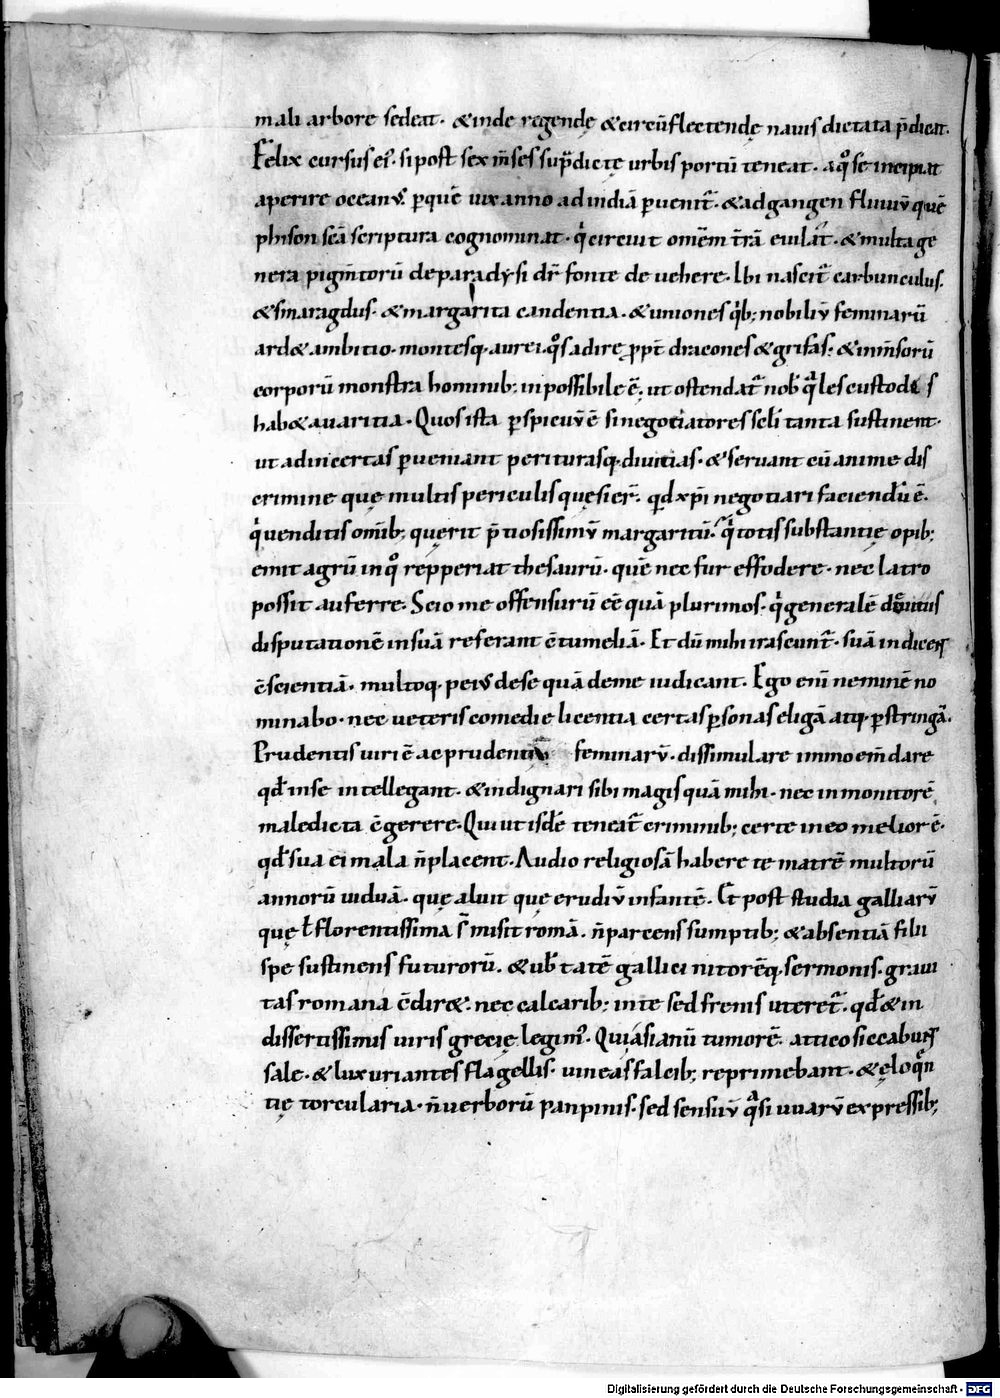 mali arbore sedeat. &inde regendę &circūflectendę nauis dictata p̄dicat.
Felix cursus eſ. si post sex m̄ses sup̄dictę urbis portū teneat. a qͦ se incipiat
aperire oceanꝰ. p̲quē uix anno ad indiā p̲uenit᷑. &ad gangen fluuiū quē
phison scā scriptura cognominat. qͥ circuit omēm t̄rā euilat᷑. &multa ge
nera pigm̄torū de paradysi dr̄ fonte deuehere. Ibi nascit᷑ carbunculus.
&smaragdus. &margarita candentia. &uniones qͥb; nobiliū feminarū
ard& ambitio. montesq. aurei. qͦs adire ꝓpt̄ dracones &grifas. &inm̄sorū
corporū monstra hominib; inpossibile ē. ut ostendat᷑ nob̄ qͣles custodes
hab& auaritia. Quos ista p̲spicuū ē si negotiatores sc̄li tanta sustinent.
ut ad incertas p̲ueniant periturasq. diuitias. &seruant cū anime dis
crimine quę multis periculis quęsier̄. qd xp̄i negotiari faciendū ē.
qͥ uenditis omib; querit p̄tiosissimū margaritū. qͥ totis substantię opib;
emit agrū in qͦ repperiat thesaurū. quē nec fur effodere. nec latro
possit auferre. Scio me offensurū eē quā plurimos. qͥ generalē de uitiis
disputationē in suā referant c̄tumeliā. Et dū mihi irascunt᷑. suā indicent
c̄scientiā. multoq. peiꝰ de se quā de me iudicant. Ego eni neminē no
minabo. nec ueteris comedie licentia certas p̲sonas eligā atq. p̲stringā.
Prudentis uiri ē ac prudentiū feminarū. dissimulare immo em̄dare
qd̄ in se intellegant. &indignari sibi magis quā mihi. nec in monitorē
maledicta c̄gerere. Qui ut isdē teneat᷑ criminib; certe in eo melior ē.
qd̄ sua ei mala n̄ placent. Audio religiosā habere te matrē multorū
annorū uiduā. quę aluit que erudiū infantē. Et post studia galliarū
quę ł florentissima s̄ misit romā. n̄ parcens sumptib; &absentiā filii
spe sustinens futurorū. &ub̄tatē gallici nitorēq. sermonis. graui
tas romana c̄dir&. nec calcarib; in te sed frenis uteret᷑. qd̄ &in
dissertissimis uiris grecię legimꝰ. Qui asianū tumorē. attico siccabant
sale. &luxuriantes flagellis. uineas falcib; reprimebant. &ęloqn̄
tię torcularia. n̄ uerborū panpinis. sed sensuū qͣsi uuarū expressib;